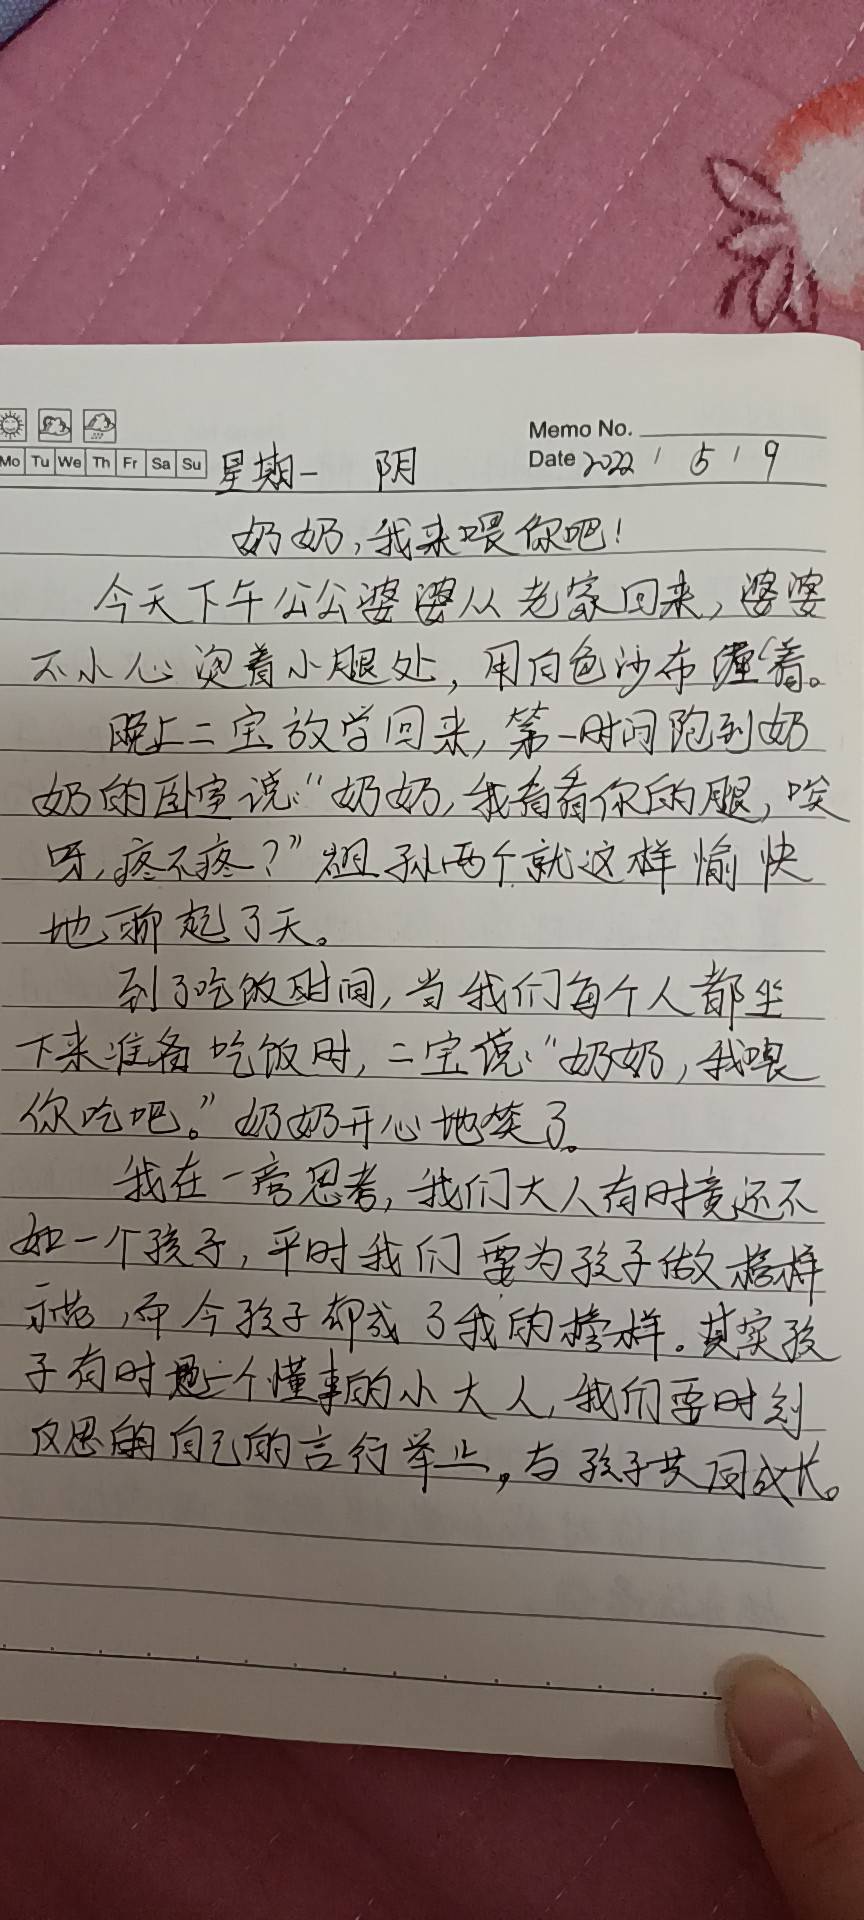 Memo No.
Mo Tu We Th Fr Sa Su 星期一 阴 Date 2022 / 5 / 9
奶奶,我来喂你吧!
今天下午公公婆婆从老家回来,婆婆
不小心烫着小腿处,用白色沙布缠着。
晚上二宝放学回来,第一时间跑到奶
奶的卧室说:“奶奶,我看看你的腿,唉
呀,疼不疼?”祖孙两个就这样愉快
地聊起了天。
到了吃饭时间,当我们每个人都坐
下来准备吃饭时,二宝说:“奶奶,我喂
你吃吧。”奶奶开心地笑了。
我在一旁思考,我们大人有时竟还不
如一个孩子,平时我们要为孩子做榜样
示范,而今孩子却成了我的榜样。其实孩
子有时是一个懂事的小大人,我们要时刻
反思自己的言行举止,与孩子共同成长。